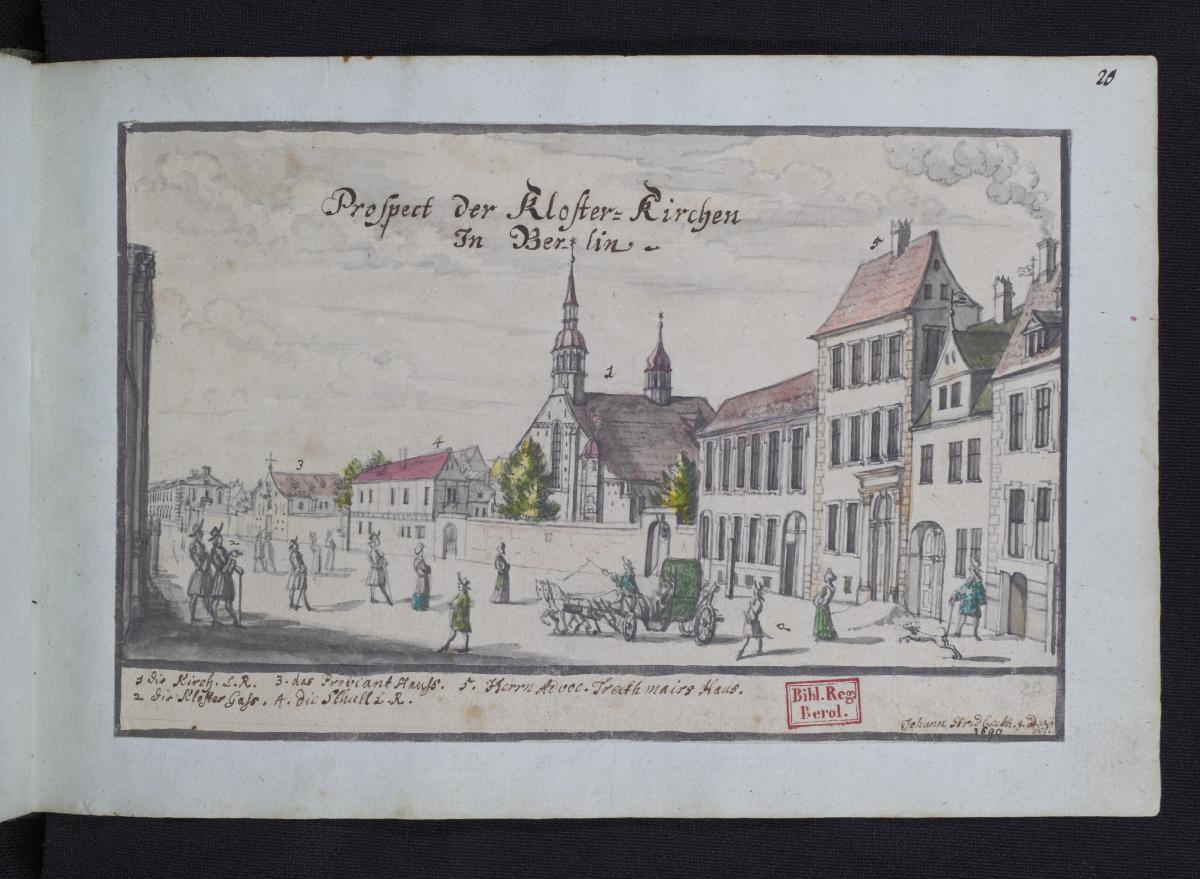 20
Prospect der Kloster=Kirchen
In Berlin.
5
1
4
3
2
2
1 die Kirch. L.R. 3. das Proviant Hauss. 5. Herrn Advoc. Treithmairs Haus.
2 die Kloster Gass. 4. die Schull L.R.
Bibl. Reg.
Berol.
Johann Stridbeckh. j.
1690